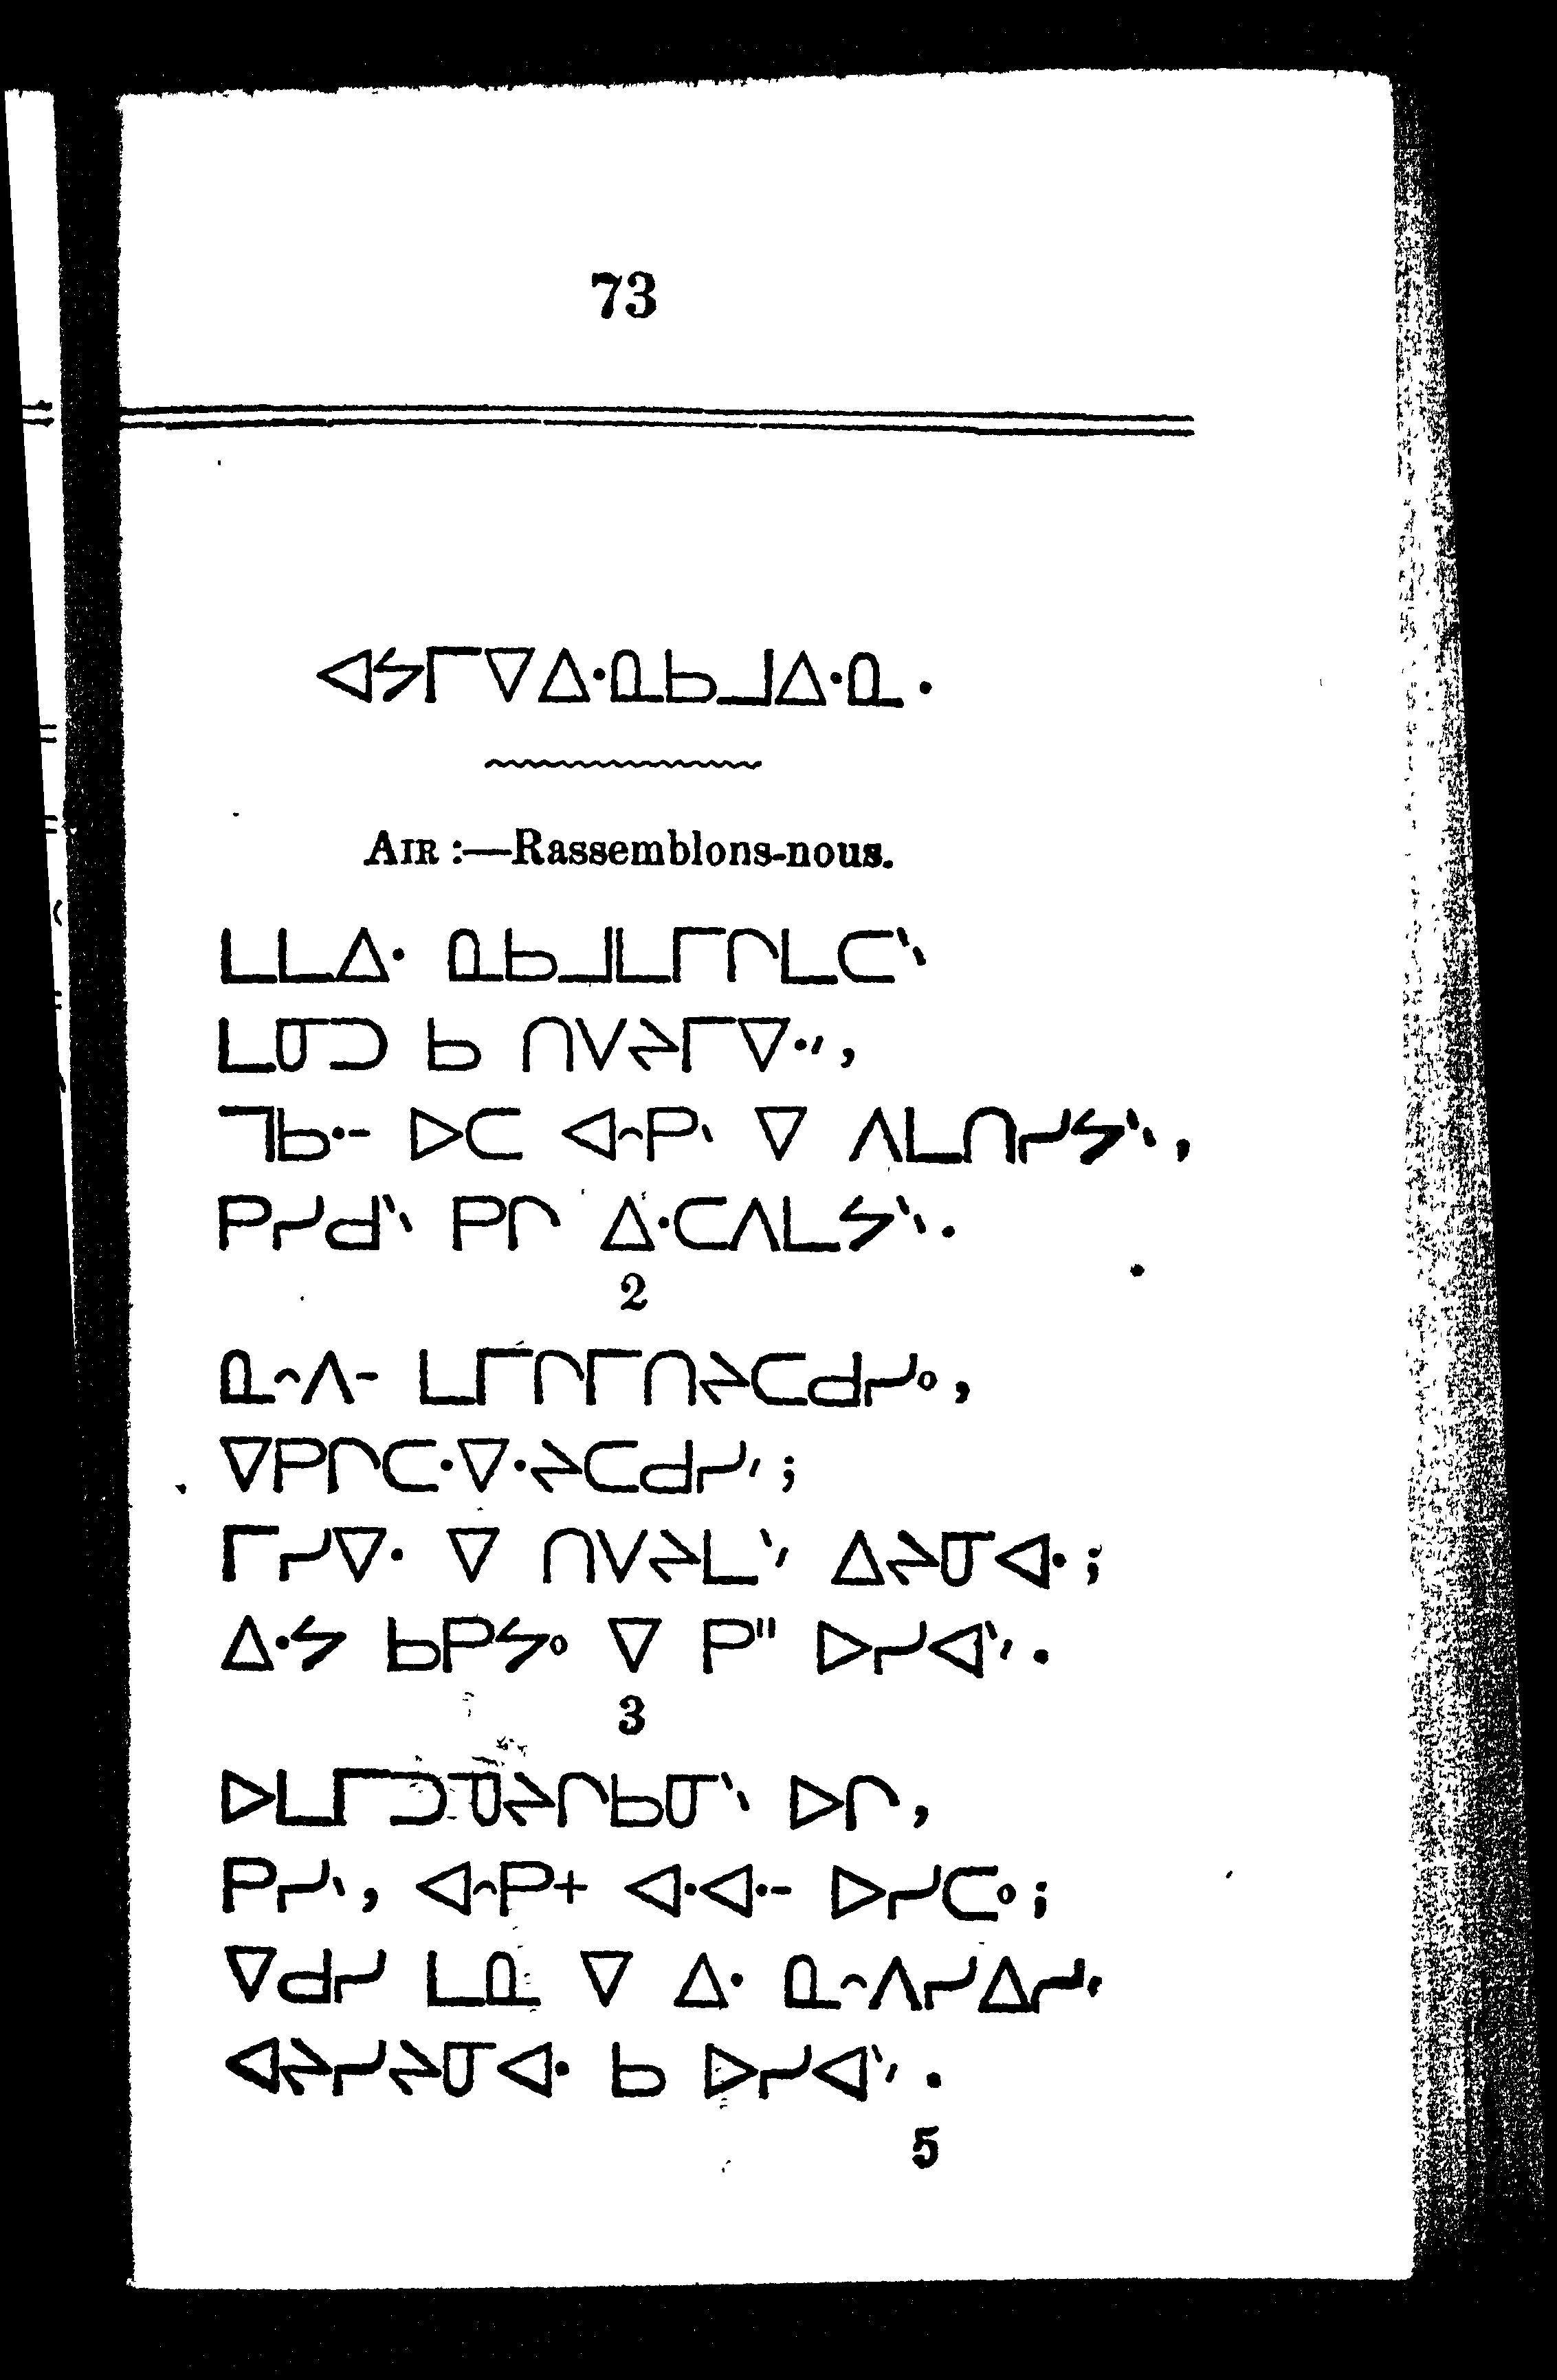 73
ᐊᔭᒥᐁᐃᐧᓇᑲᒧᐃᐧᓇ .
AIR :—Rassemblons-nous.
ᒪᒪᐃᐧ ᓇᑲᒧᒪᒥᒋᒪᑕᐠᐠ
ᒪᓂᑐ ᑲ ᑎᐯᔨᒥᐁᐧᐟ ,
ᒣᑲᐧᐨ ᐅᑕ ᐊᐢᑭᐠ ᐁ ᐱᒪᑎᓯᔭᐠᐠ ,
ᑭᓯᑯᐠᐠ ᑭᒋ ᐃᐧᑕᐱᒪᔭᐠᐠ .
2
ᓇᐢᐱᐨ ᒪᒥᒋᒥᑎᔨᑕᑯᓯᐤ ,
ᐁᑭᒋᑕᐧᐁᐧᔨᑕᑯᓯᐟ ;
ᒥᓯᐁᐧ ᐁ ᑎᐯᔨᒪᐠᐟ ᐃᔨᓂᐊᐧ ;
ᐃᐧᔭ ᑲᑭᔭᐤ ᐁ ᑭᐦ ᐅᓯᐊᐠᐟ .
3
ᐅᒪᒥᑐᓀᔨᒋᑲᓂᐠᐠ ᐅᒋ ,
ᑭᓯᐠ , ᐊᐢᑭᕀ ᐊᐧᐊᐧᐨ ᐅᓯᑕᐤ ;
ᐁᑯᓯ ᒪᓇ ᐁ ᐃᐧ ᓇᐢᐱᓯᐃᓯᐟ
ᐊᔨᓯᔨᓂᐊᐧ ᑲ ᐅᓯᐊᐠᐟ .
5